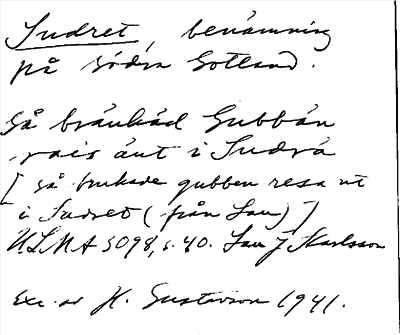 Sudret, benämning
på södra Gotland.
Så bräukäd Gubbän
rais äut i Sudrä
[så brukade gubben resa ut
i Sudret (från Lau)]
ULMA 3098, s. 40. Lau J Karlsson
Exc. av H. Gustavson 1941.